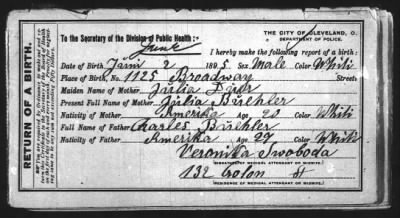 THE CITY OF CLEVELAND, O.
DEPARTMENT OF POLICE.
To the Secretary of the Division of Public Health:
I hereby make the following report of a birth:
June
Date of Birth 2 1895 Sex Male Color Whiti
Place of Birth, No. 1125 Broadway Street:
Maiden Name of Mother Julia
Present Full Name of Mother Julia Buehler
Nativity of Mother Amerika Age 20 Color Whiti
Full Name of Father Charles Buehler
Nativity of Father Amerika Age Color Whiti
Veronika Swoboda
(SIGNATURE OF MEDICAL ATTENDANT OR MIDWIFE.)
132 Colon St
(RESIDENCE OF MEDICAL ATTENDANT OR MIDWIFE.)
RETURN OF A BIRTH.